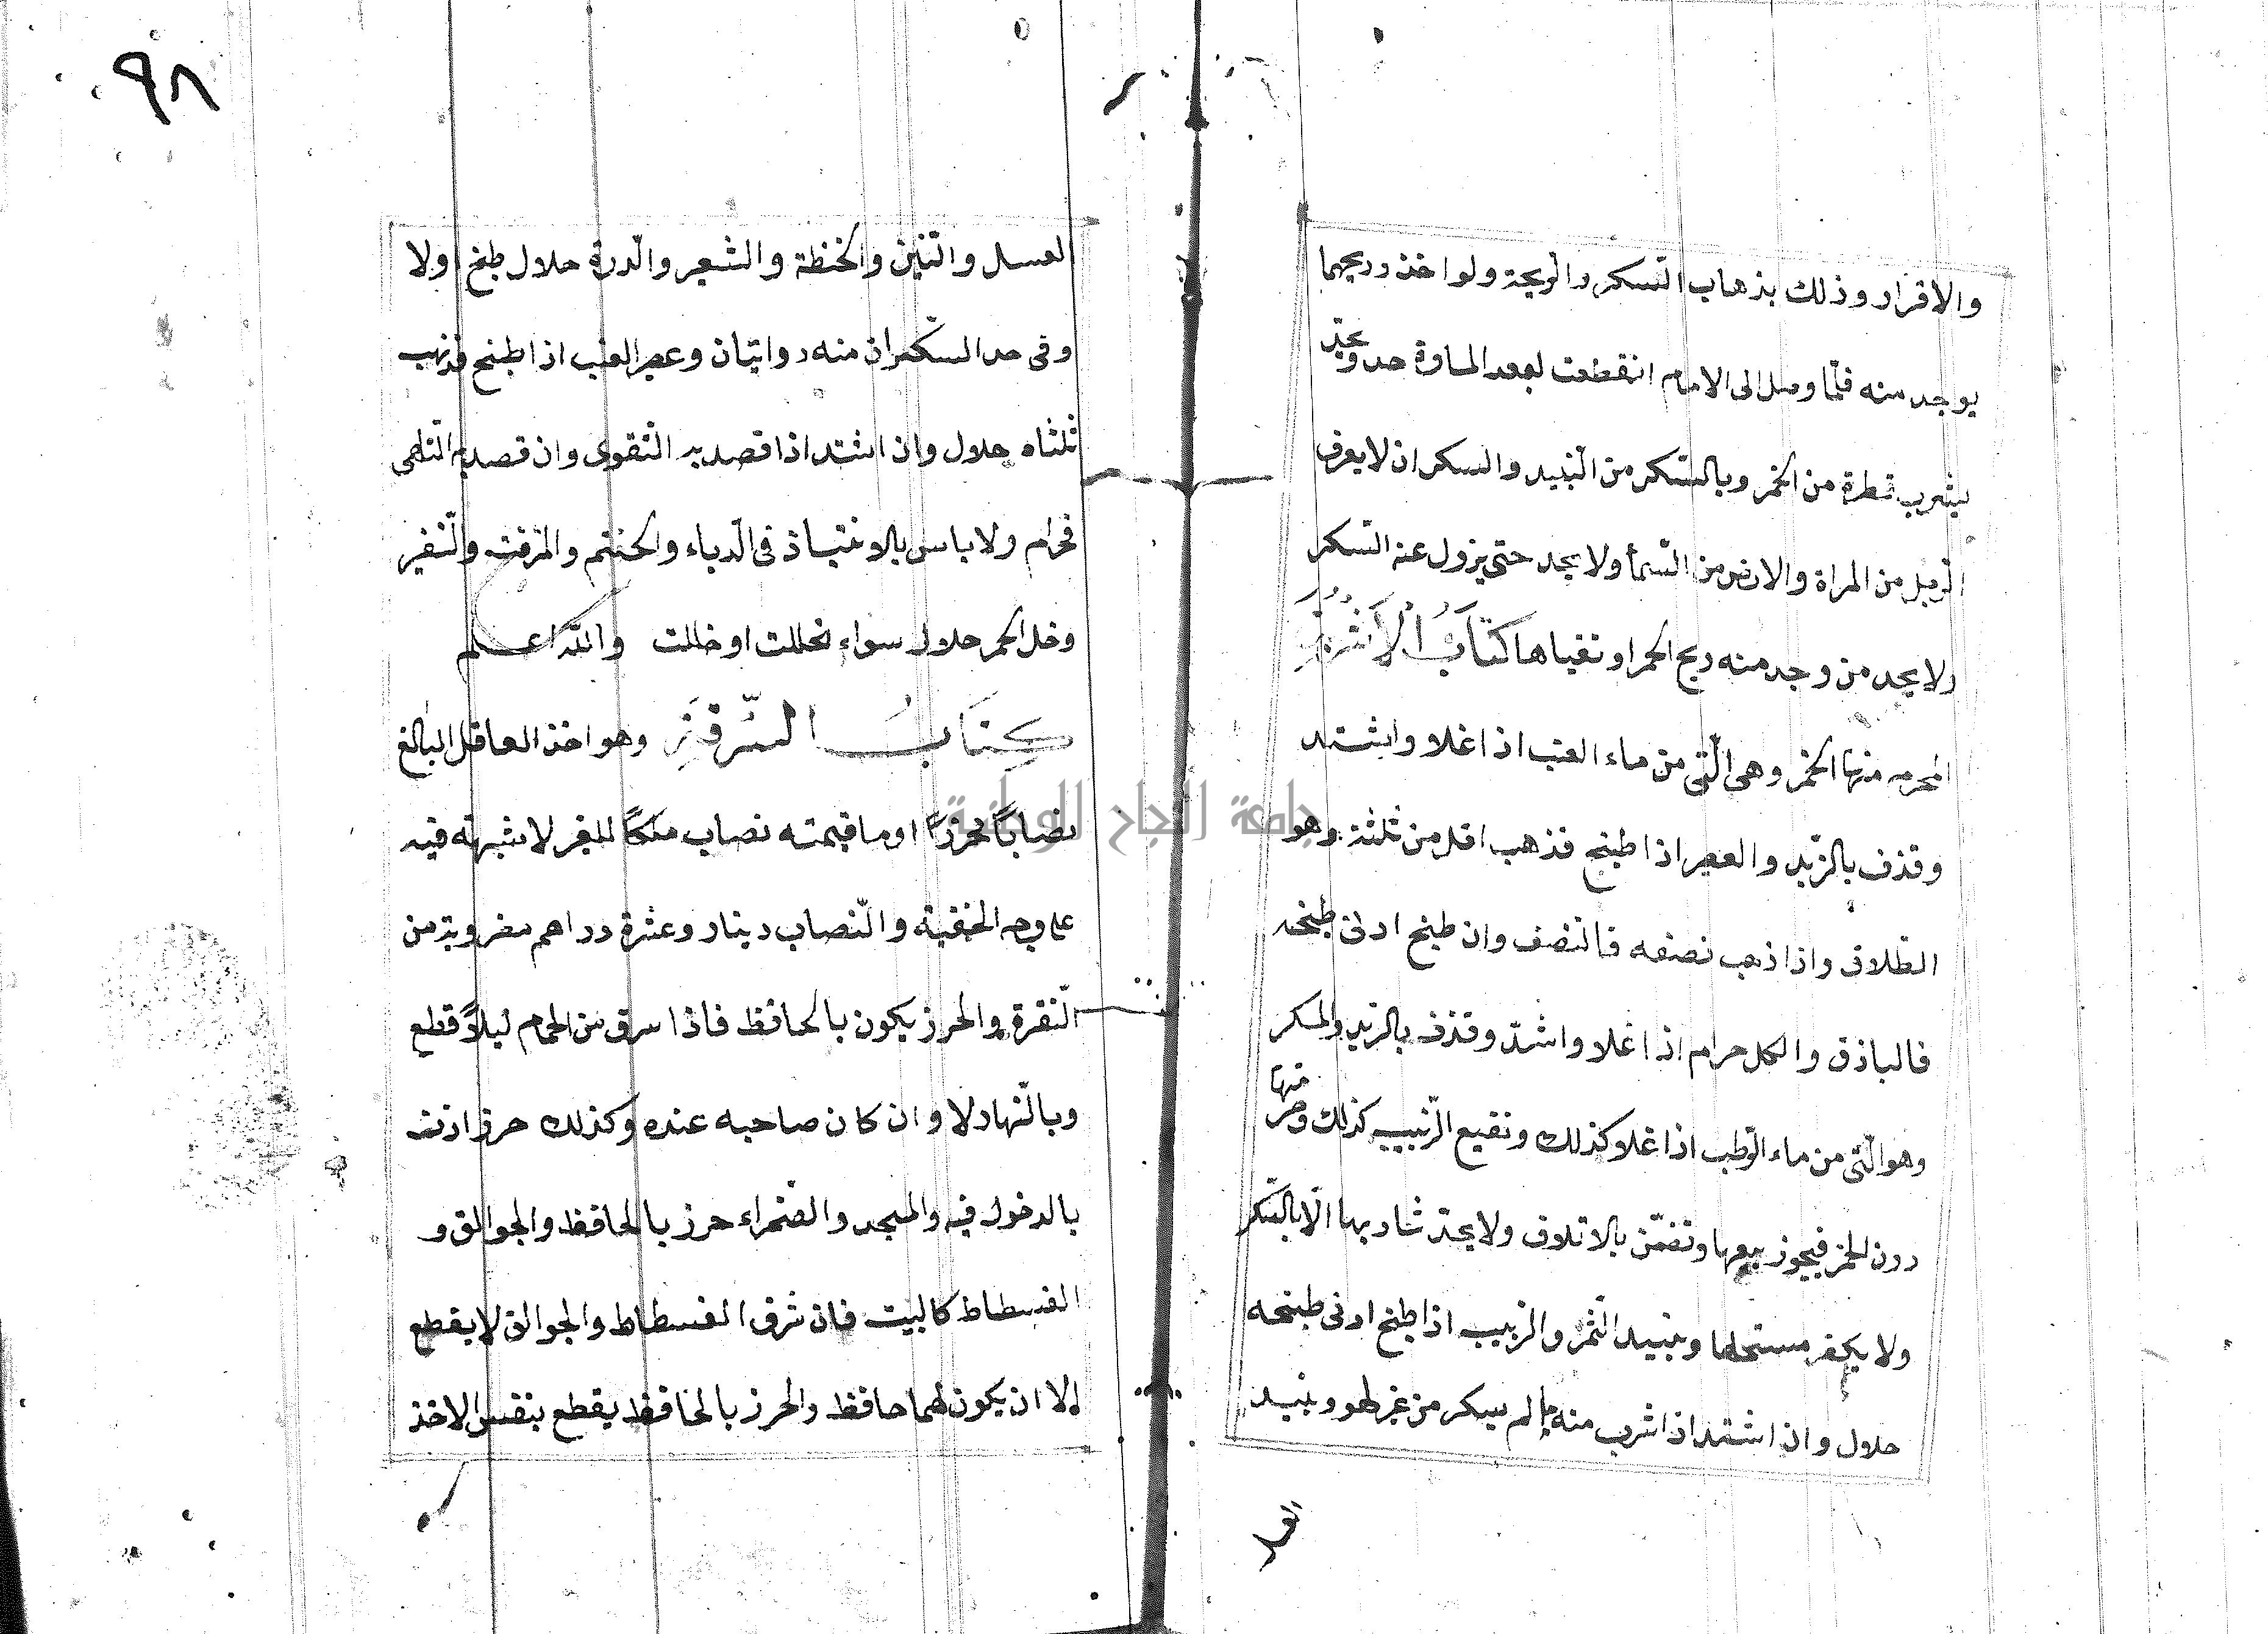 والاقرار وذلك بذهاب السكر والريحة ولو اخذ وريحها
يوجد منه فلما وصل الى الامام انقطعت لبعد المسافة حد ويحد
بشرب قطرة من الخمر وبالسكر من النبيد والسكران لا يعرف
الرجل من المراة والارض من السمأ ولا يحد حتى يزول عنه السكر
ولا يحد من وجد منه ريح الخمر او تقياها كتاب الاشربة
المحرمه منها الخمر وهى التى من ماء العنب اذا غلا واشتد
وقذف بالزبد والعصير اذا طبخ فذهب اقل من ثلثة وهو
الطلاق واذا ذهب نصفه فالنصف وان طبخ ادنى طبخه
فالباذق والكل حرام اذا غلا واشدّ وقذف بالزبد والسكر
وهو التى من ماء الرطب اذا غلا كذلك ونقيع الزبيب كذلك وحرمتها
دون الخمر فيجوز بيعها وتضمن بالاتلاف ولا يحد شاربها الا بالسكر
ولا يكفر مستحلها ونبيد التمر والزبيب اذا طبخ ادنى طبخه
حلال وان اشتد اذا شرب منه ما لم يسكر من غير لهو ونبيد
٩٨
العسل والتين والحنظة والشعير والدرة حلال طبخ اولا
وفى حد السكران منه روايتان وعصير العنب اذا طبخ فذهب
ثلثاه حلال وان اشتد اذا قصد به التقوى وان قصد به التلهى
فحرام ولا باس بالانتباذ فى الدباء والحنتم والمزفت والنقير
وخل الخمر حلال سواء تخللت او خللت والله اعلم
كتاب السرقة وهو اخذ العاقل البالغ
نصاباً محرزاً او ما قيمته نصاب ملكاً للغير لا شبهة فيه
على وجه الخفية والنصاب دينار وعشرة دراهم مضروبة من
النقرة والحرز يكون بالحافظ فاذا سرق من الحمام ليلاً قطع
وبالنهار لا وان كان صاحبه عنده وكذلك حرز اذنت
بالدخول فيه والمسجد والصحراء حرز بالحافظ والجوالق و
الفسطاط كالبيت فان سرق الفسطاط والجوالق لا يقطع
الا ان يكون لهما حافظ والحرز بالحافظ يقطع بنفس الاخذ
جامعة النجاح الوطنية